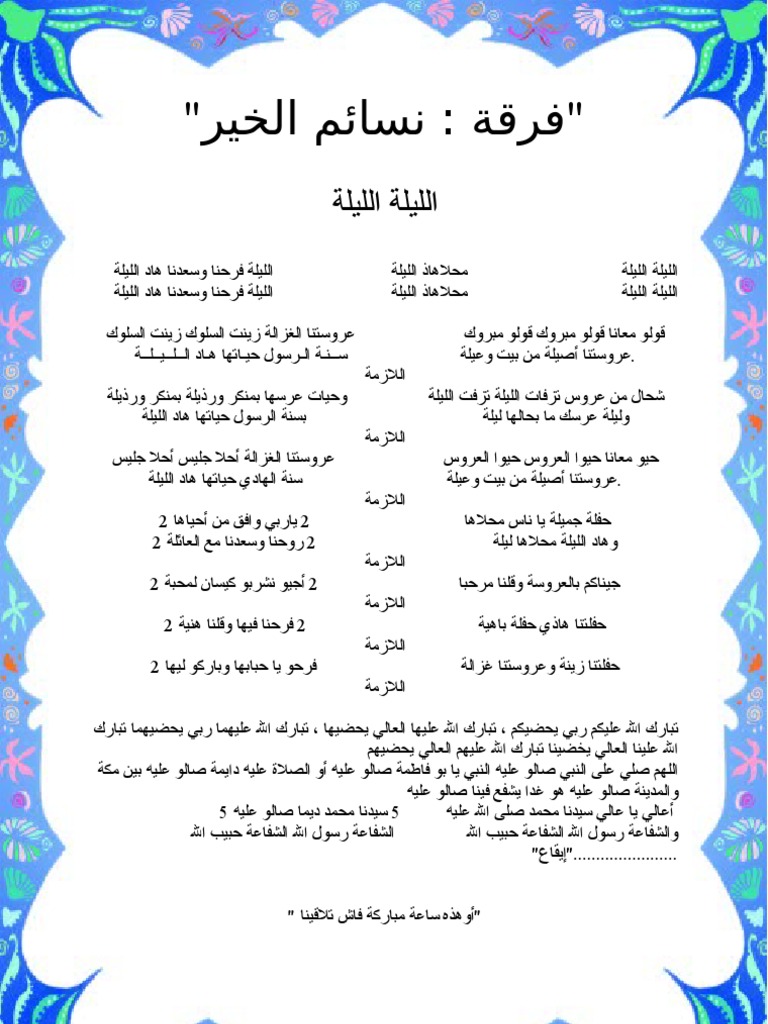 "فرقة : نسائم الخير"
الليلة الليلة
الليلة الليلة محلاهاذ الليلة الليلة فرحنا وسعدنا هاد الليلة
الليلة الليلة محلاهاذ الليلة الليلة فرحنا وسعدنا هاد الليلة
قولو معانا قولو مبروك قولو مبروك عروستنا الغزالة زينت السلوك زينت السلوك
عروستنا أصيلة من بيت وعيلة. ســنـة الـرسول حيـاتها هـاد الــلــيــلــة
اللازمة
شحال من عروس تزفات الليلة تزفت الليلة وحيات عرسها بمنكر ورذيلة بمنكر ورذيلة
وليلة عرسك ما بحالها ليلة بسنة الرسول حياتها هاد الليلة
اللازمة
حيو معانا حيوا العروس حيوا العروس عروستنا الغزالة أحلا جليس أحلا جليس
عروستنا أصيلة من بيت وعيلة. سنة الهادي حياتها هاد الليلة
اللازمة
حفلة جميلة يا ناس محلاها 2 ياربي وافق من أحياها 2
وهاد الليلة محلاها ليلة 2 روحنا وسعدنا مع العائلة 2
اللازمة
جيناكم بالعروسة وقلنا مرحبا 2 أجيو نشربو كيسان لمحبة 2
اللازمة
حفلتنا هاذي حفلة باهية 2 فرحنا فيها وقلنا هنية 2
اللازمة
حفلتنا زينة وعروستنا غزالة فرحو يا حبابها وباركو ليها 2
اللازمة
تبارك الله عليكم ربي يحضيكم ، تبارك الله عليها العالي يحضيها ، تبارك الله عليهما ربي يحضيهما تبارك
الله علينا العالي يخضينا تبارك الله عليهم العالي يحضيهم
اللهم صلي على النبي صالو عليه النبي يا بو فاطمة صالو عليه أو الصلاة عليه دايمة صالو عليه بين مكة
والمدينة صالو عليه هو غدا يشفع فينا صالو عليه
أعالي يا عالي سيدنا محمد صلى الله عليه 5 سيدنا محمد ديما صالو عليه 5
والشفاعة رسول الله الشفاعة حبيب الله الشفاعة رسول الله الشفاعة حبيب الله
......................."إيقاع"
"أوهذه ساعة مباركة فاش تلاقينا "